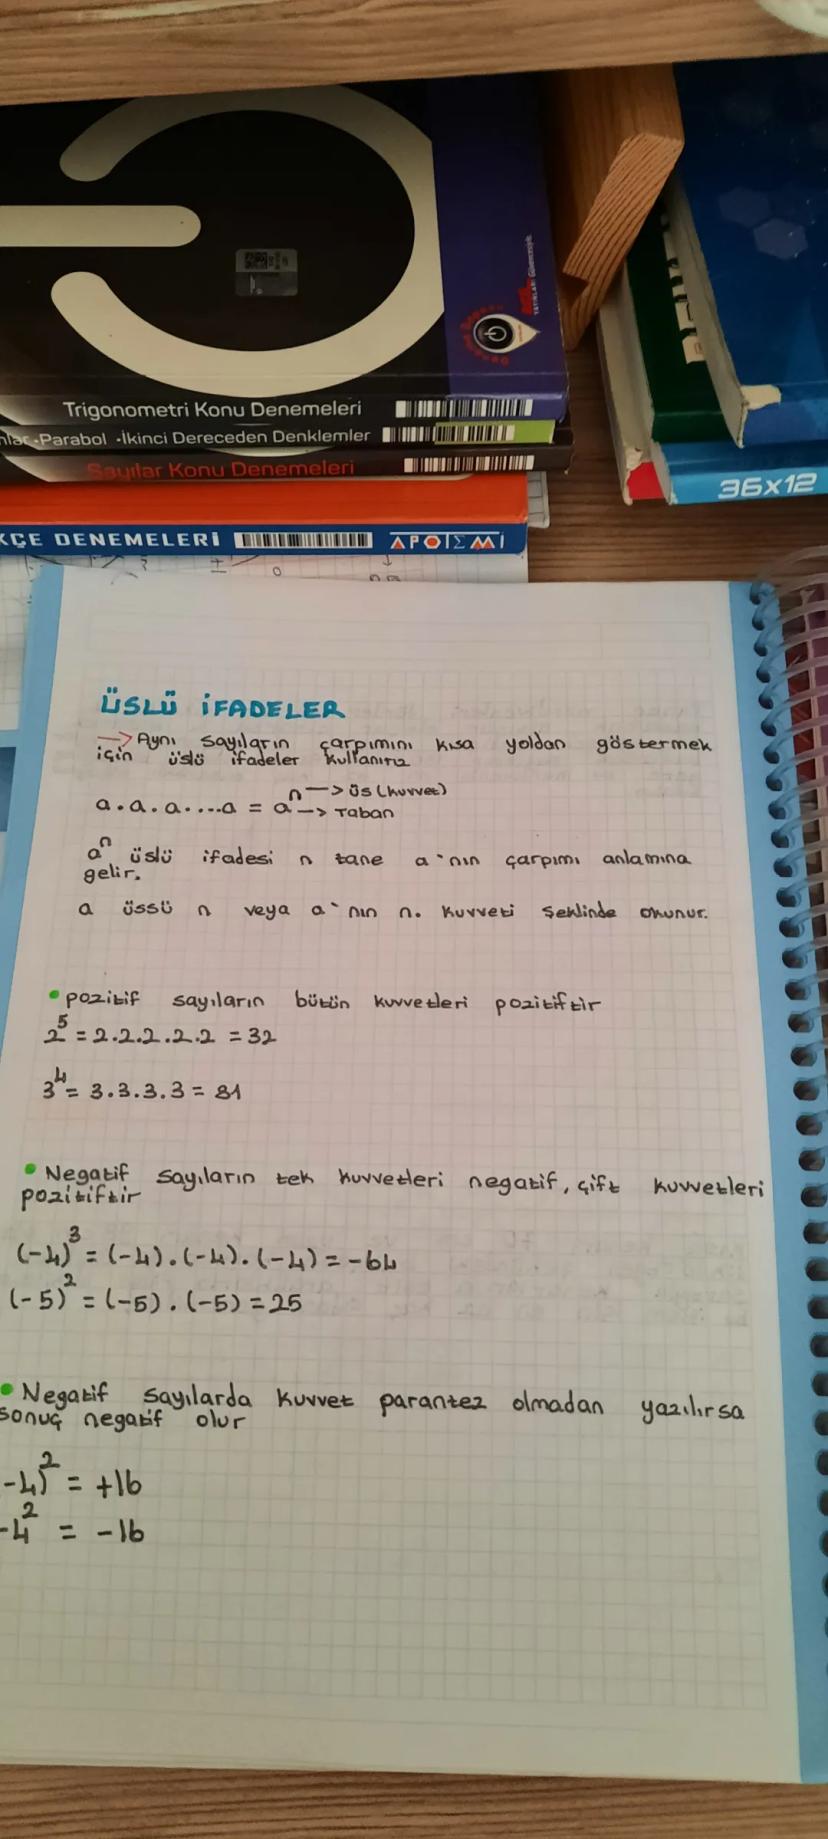 YAYINLARI Güvencesiyle
Trigonometri Konu Denemeleri
Parabol • İkinci Dereceden Denklemler
Sayılar Konu Denemeleri
KÇE DENEMELERİ
APOTEMİ
36x12
ÜSLÜ İFADELER
→ Aynı sayıların çarpımını kısa yoldan göstermek
için üslü ifadeler kullanırız
a.a.a....a = aⁿ → üs (kuvvet)
→ Taban
aⁿ üslü ifadesi n tane a'nın çarpımı anlamına
gelir.
a üssü n veya a'nın n. kuvveti şeklinde okunur.
• pozitif sayıların bütün kuvvetleri pozitiftir
2⁵ = 2.2.2.2.2 = 32
3⁴ = 3.3.3.3 = 81
• Negatif sayıların tek kuvvetleri negatif, çift kuvvetleri
pozitiftir
(-4)³ = (-4).(-4).(-4) = -64
(-5)² = (-5).(-5) = 25
• Negatif sayılarda kuvvet parantez olmadan yazılırsa
sonuç negatif olur
-4)² = +16
-4² = -16